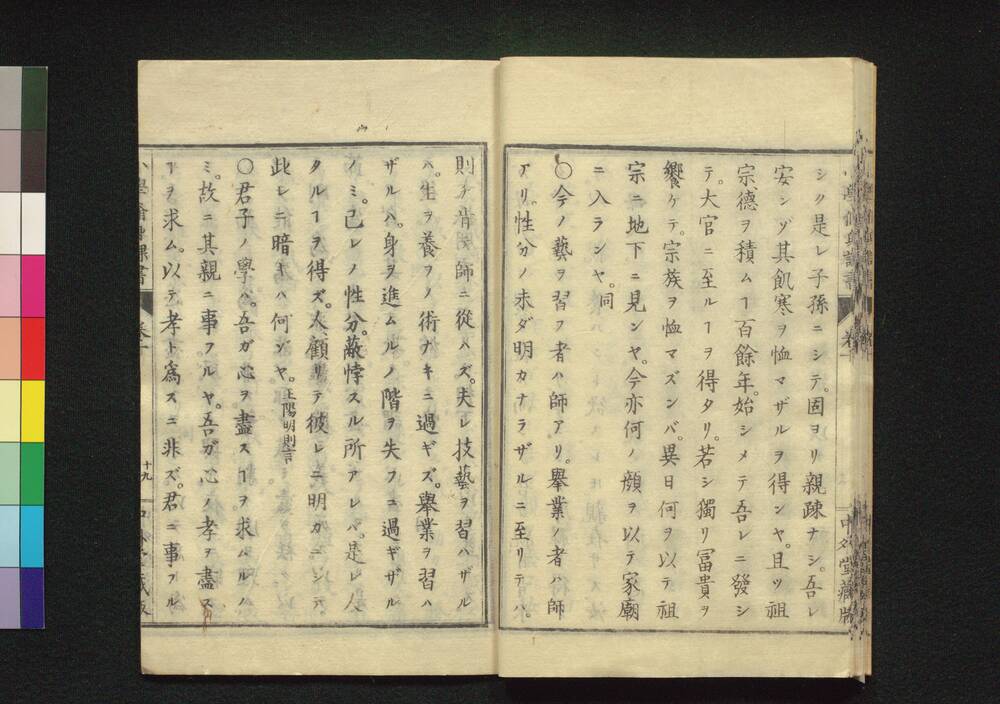 シク是レ子孫ニシテ。固ヨリ親疎ナシ。吾レ
安ンゾ其飢寒ヲ恤マザルヲ得ンヤ。且ツ祖
宗、德ヲ積ムヿ百餘年。始シメテ吾レニ發シ
テ。大官ニ至ルヿヲ得タリ。若シ獨リ冨貴ヲ
饗ケテ。宗族ヲ恤マズンバ。異日何ヲ以テ祖
宗ニ地下ニ見ンヤ。今亦何ノ顔ヲ以テ家廟
ニ入ランヤ。同
〇今ノ藝ヲ習フ者ハ師アリ。擧業ノ者ハ師
アリ。性分ノ未ダ明カナラザルニ至リテハ。
則チ肯テ師ニ從ハズ。夫レ技藝ヲ習ハザル
ハ。生ヲ養フノ術ナキニ過ギズ。擧業ヲ習ハ
ザルハ。身ヲ進ムルノ階ヲ失フニ過ギザル
ノミ。己レノ性分。蔽悖スル所アレバ。是レ人
タルヿヲ得ズ。人、顧リテ彼レニ明カニシテ
此レニ暗キハ何ゾヤ。王陽明則言
〇君子ノ學ハ。吾ガ心ヲ盡スヿヲ求ムルノ
ミ。故ニ其親ニ事フルヤ。吾ガ心ノ孝ヲ盡ス
ヿヲ求ム。以テ孝ト爲スニ非ズ。君ニ事フル
十九
中外堂藏版